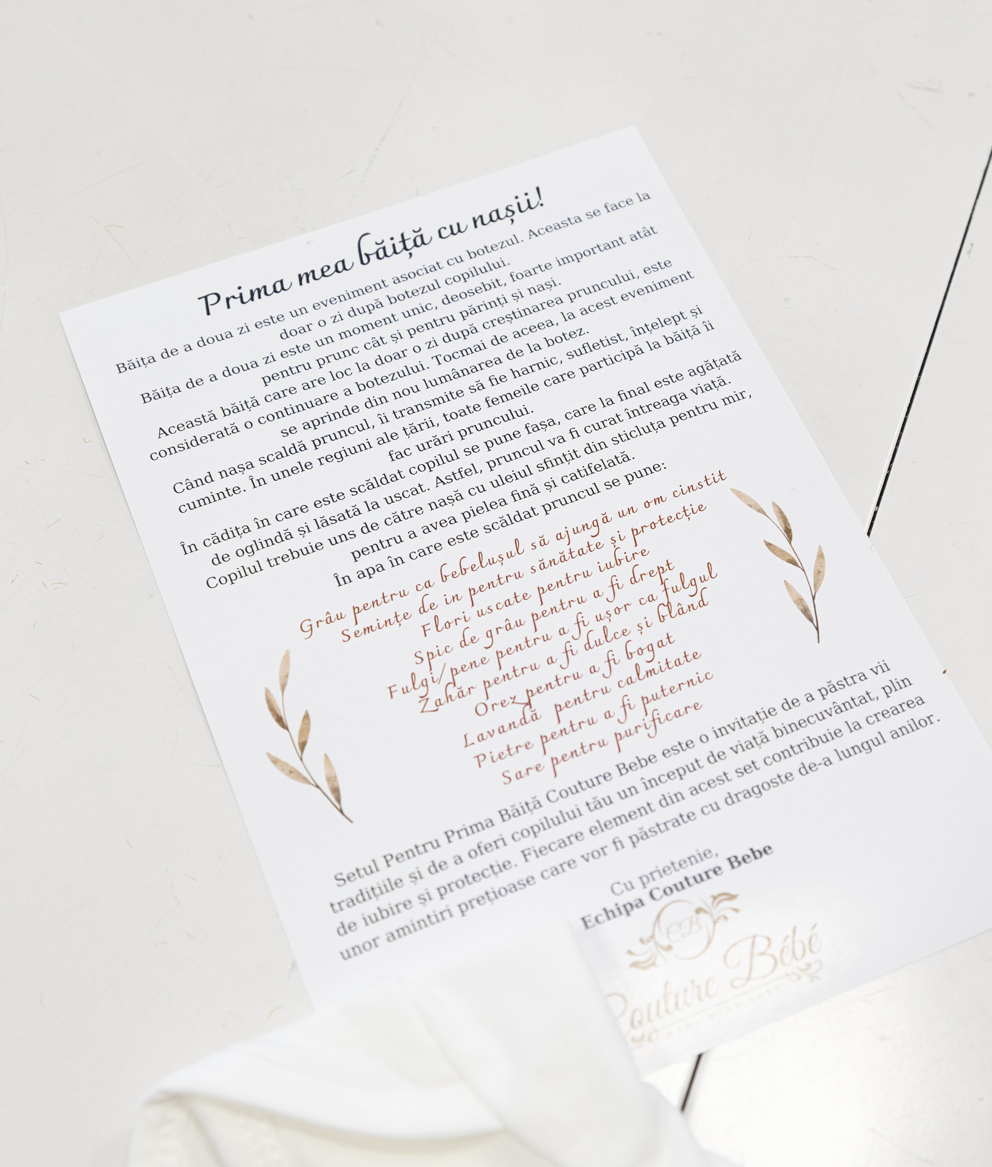 Prima mea băiță cu nașii!
Băița de a doua zi este un eveniment asociat cu botezul. Aceasta se face la
doar o zi după botezul copilului.
Băița de a doua zi este un moment unic, deosebit, foarte important atât
pentru prunc cât și pentru părinți și nași.
Această băiță care are loc la doar o zi după creștinarea pruncului, este
considerată o continuare a botezului. Tocmai de aceea, la acest eveniment
se aprinde din nou lumânarea de la botez.
Când nașa scaldă pruncul, îi transmite să fie harnic, sufletist, înțelept și
cuminte. În unele regiuni ale țării, toate femeile care participă la băiță îi
fac urări pruncului.
În cădița în care este scăldat copilul se pune fașa, care la final este agățată
de oglindă și lăsată la uscat. Astfel, pruncul va fi curat întreaga viață.
Copilul trebuie uns de către nașă cu uleiul sfințit din sticluța pentru mir,
pentru a avea pielea fină și catifelată.
În apa în care este scăldat pruncul se pune:
Grâu pentru ca bebelușul să ajungă un om cinstit
Semințe de in pentru sănătate și protecție
Flori uscate pentru iubire
Spic de grâu pentru a fi drept
Fulgi/pene pentru a fi ușor ca fulgul
Zahăr pentru a fi dulce și blând
Orez pentru a fi bogat
Lavandă pentru calmitate
Pietre pentru a fi puternic
Sare pentru purificare
Setul Pentru Prima Băiță Couture Bebe este o invitație de a păstra vii
tradițiile și de a oferi copilului tău un început de viață binecuvântat, plin
de iubire și protecție. Fiecare element din acest set contribuie la crearea
unor amintiri prețioase care vor fi păstrate cu dragoste de-a lungul anilor.
Cu prietenie,
Echipa Couture Bebe
CB
Couture Bébé